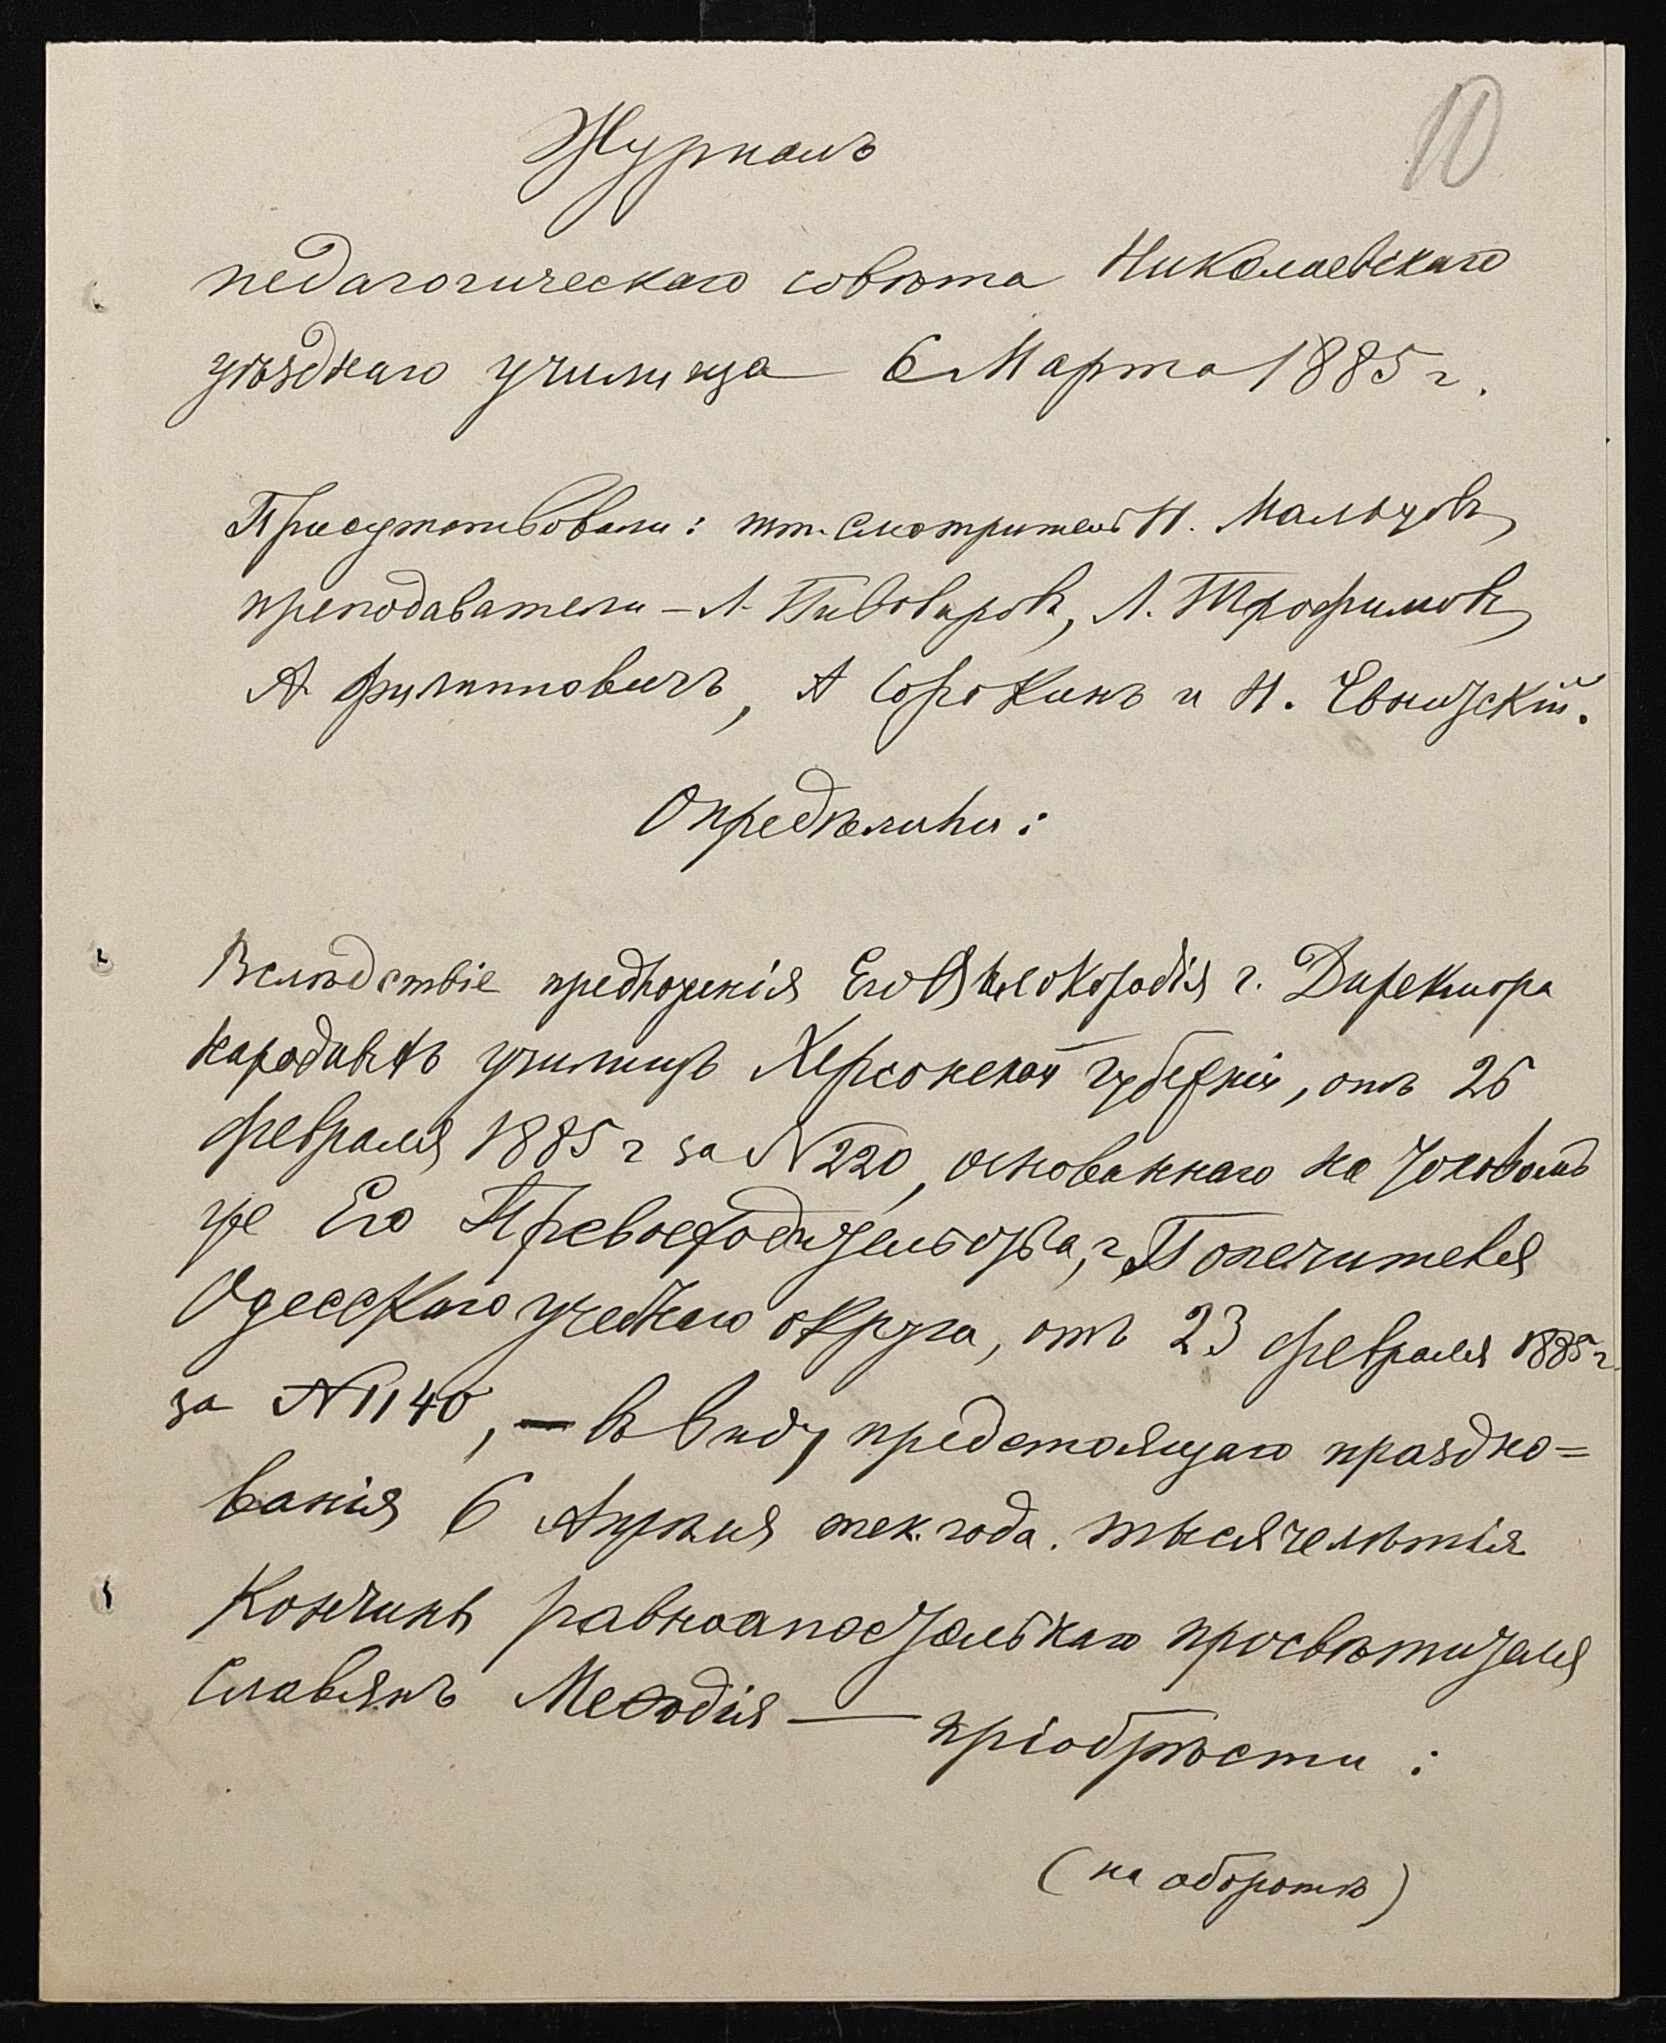 10
Журналъ
педагогическаго совѣта Николаевскаго
уѣзднаго училища 6 Марта 1885 г.
Присутствовали: шт. смотритель Н. Мальцовъ,
преподаватели – Л. Пивоваровъ, Л. Трофимовъ,
А. Филиповичъ, А Сорокинъ и Н. Евницскій.
Опредѣлили:
Вслѣдствіе предложенія Его Высокородія г. Директора
народныхъ училищъ Херсонской губерніи, отъ 26
февраля 1885 г за № 220, основаннаго на таковомъ
же Его Превосходительства, г. Попечителя
Одесскаго учебнаго округа, отъ 23 февраля 1885 г.
за № 1140, – въ виду предстоящаго праздно=
ванія 6 Апрѣля тек. года. тысячелѣтія
Кончины равноапостольнаго просвѣтителя
Славянъ Меѳодія — пріобрѣсти :
(на оборотѣ)